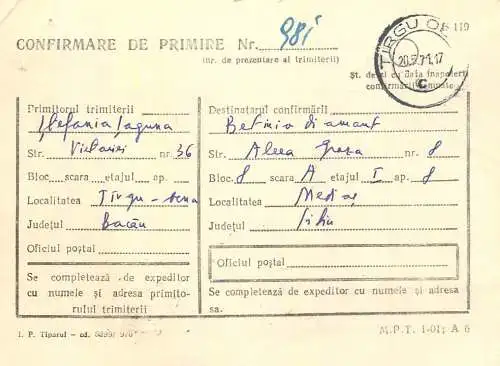 E 119
CONFIRMARE DE PRIMIRE Nr. 981
(nr. de prezentare al trimiterii)
TIRGU OC
20.5.71.17
C
Șt. de zi cu data înapoierii
confirmării semnate
Primitorul trimiterii
Ștefania Laguna
Str. Victoriei nr. 36
Bloc scara etajul ap.
Localitatea Tîrgu-Ocna
Județul Bacău
Oficiul poștal
Se completează de expeditor
cu numele și adresa primito-
rului trimiterii
Destinatarul confirmării
diamant
Str. Aleea nr. 8
Bloc. 8 scara A etajul I ap. 8
Localitatea Mediaș
Județul Sibiu
Oficiul poștal
Se completează de expeditor cu numele și adresa
sa.
I. P. Tiparul – cd.
M.P.T. 1-01; A 6